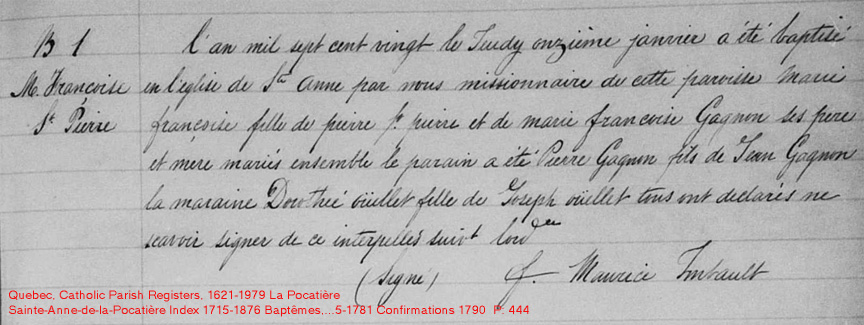 B 1
M. Françoise
St Pierre
l'an mil sept cent vingt le Jeudy onzième janvier a été baptisé
en l'eglise de Ste Anne par nous missionnaire de cette paroisse Marie
françoise fille de pierre St pierre et de marie françoise Gagnon ses pere
et mére mariés ensemble le parain a été Pierre Gagnon fils de Jean Gagnon
la maraine Dorothée oüellet fille de Joseph oüellet tous ont declarés ne
scavoir signer de ce interpellés suivt lordce
(Signé) f. Maurice Imbault
Quebec, Catholic Parish Registers, 1621-1979 La Pocatière
Sainte-Anne-de-la-Pocatière Index 1715-1876 Baptêmes,...5-1781 Confirmations 1790 P. 444